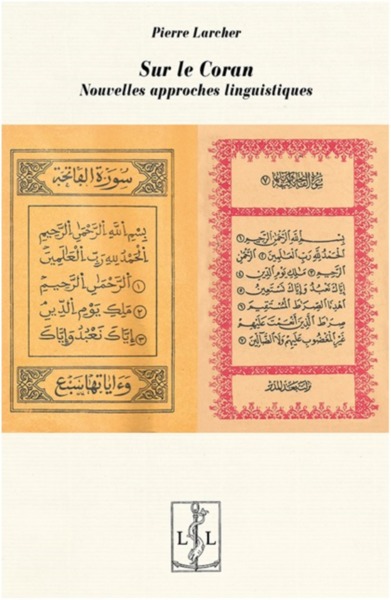 Pierre Larcher
Sur le Coran
Nouvelles approches linguistiques
سورة الفاتحة
بِسْمِ اللَّهِ الرَّحْمَٰنِ الرَّحِيمِ
الْحَمْدُ لِلَّهِ رَبِّ الْعَالَمِينَ
١ الرَّحْمَٰنِ الرَّحِيمِ
٢ مَلِكِ يَوْمِ الدِّينِ
٣ إِيَّاكَ نَعْبُدُ وَإِيَّاكَ
وءاياتها سبع
٧
بِسْمِ اللَّهِ الرَّحْمَٰنِ الرَّحِيمِ ١
الْحَمْدُ لِلَّهِ رَبِّ الْعَالَمِينَ ٢ الرَّحْمَٰنِ
الرَّحِيمِ ٣ مَلِكِ يَوْمِ الدِّينِ ٤
إِيَّاكَ نَعْبُدُ وَإِيَّاكَ نَسْتَعِينُ ٥
اهْدِنَا الصِّرَاطَ الْمُسْتَقِيمَ ٦
صِرَاطَ الَّذِينَ أَنْعَمْتَ عَلَيْهِمْ
غَيْرِ الْمَغْضُوبِ عَلَيْهِمْ وَلَا الضَّالِّينَ ٧
L L